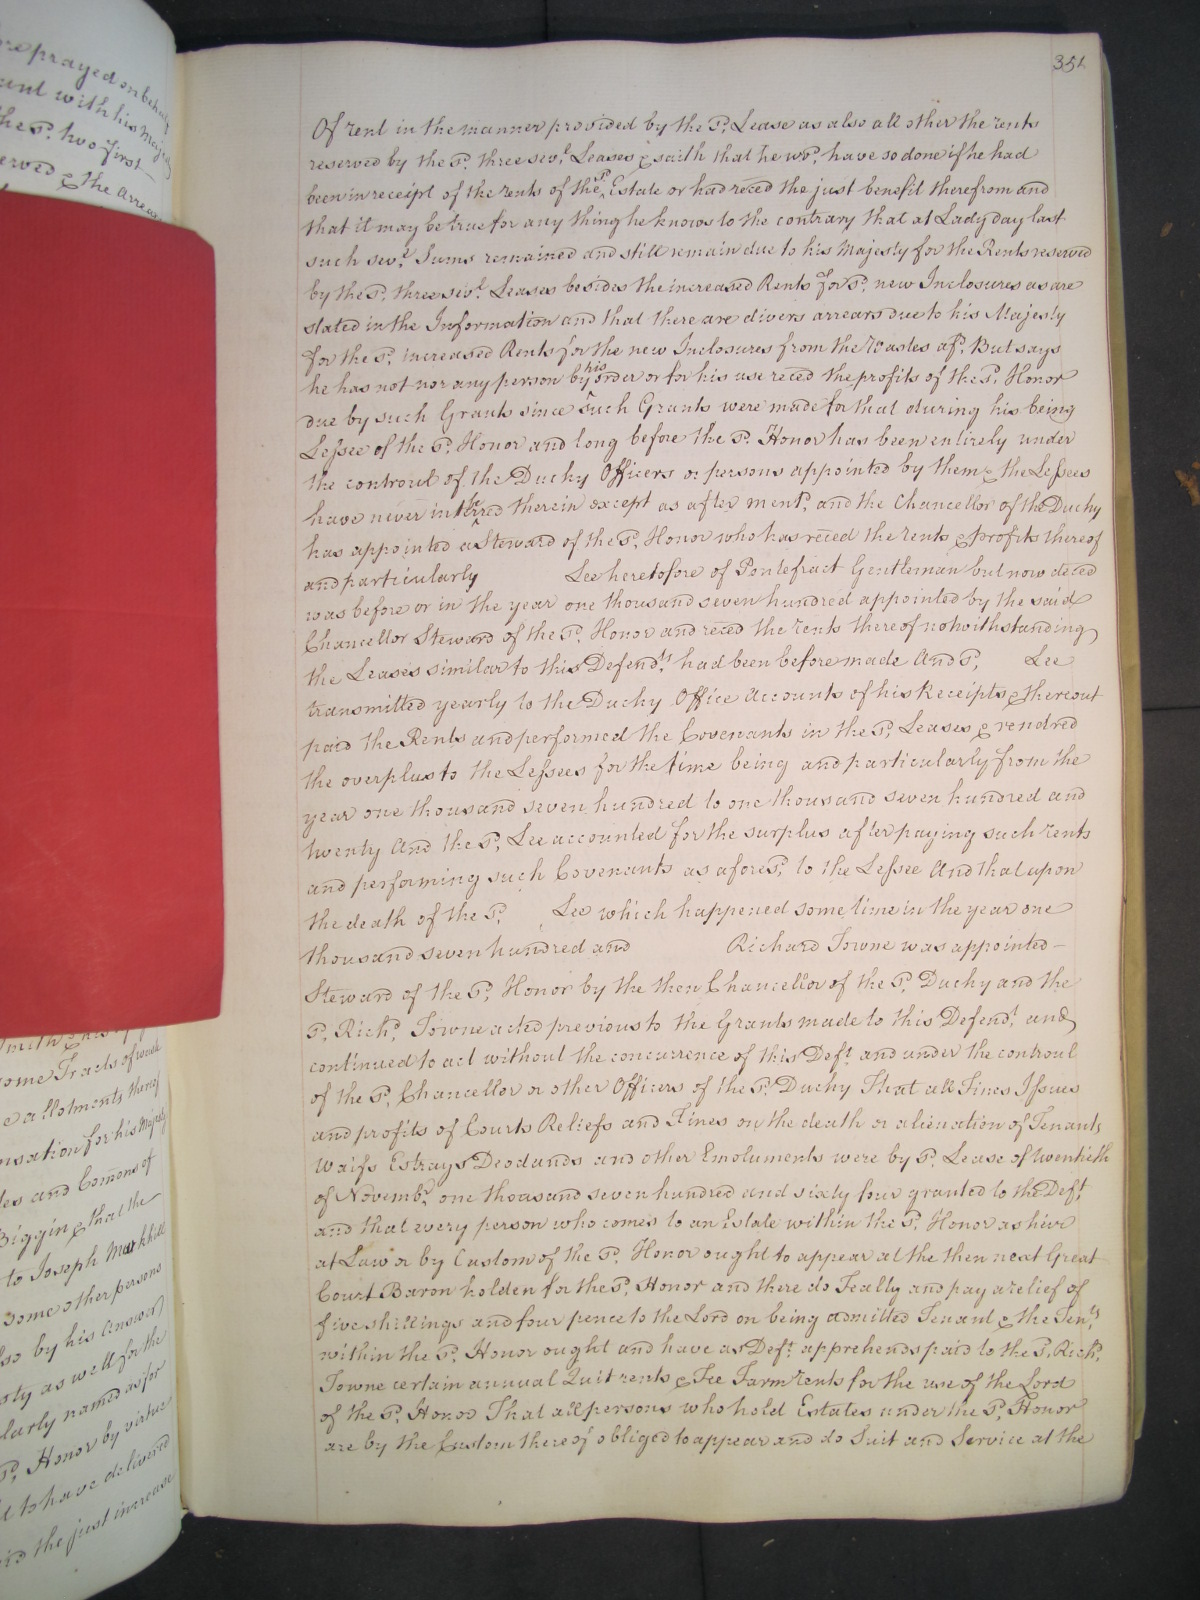 351
Of rent in the manner provided by the sd. Lease as also all other the rents
reserved by the sd. three sevl. Leases & saith that he wod. have so done if he had
been in receipt of the rents of the sd. Estate or had reced the just benefit therefrom and
that it may be true for any thing he knows to the contrary that at Lady day last
such sevl. Sums remained and still remain due to his Majesty for the Rents reserved
by the sd. three sevl. Leases besides the increased Rents for sd. new Inclosures as are
stated in the Information and that there are divers arrears due to his Majesty
for the sd. increased Rents for the new Inclosures from the Wastes afd. But says
he has not nor any person by his order or for his use reced the profits of the sd. Honor
due by such Grants since such Grants were made for that during his being
Lessee of the sd. Honor and long before the sd. Honor has been entirely under
the controul of the Duchy Officers or persons appointed by them & the Lessees
have never interfered therein except as after mentd. and the Chancellor of the Duchy
has appointed a Steward of the sd. Honor who has reced the rents & profits thereof
and particularly Lee heretofore of Pontefract Gentleman but now deced
was before or in the year one thousand seven hundred appointed by the said
Chancellor Steward of the sd. Honor and reced the rents thereof notwithstanding
the Leases similar to this Defendts. had been before made And sd. Lee
transmitted yearly to the Duchy Office Accounts of his Receipts & thereout
paid the Rents and performed the Covenants in the sd. Leases & rendred
the overplus to the Lessees for the time being and particularly from the
year one thousand seven hundred to one thousand seven hundred and
twenty And the sd. Lee accounted for the surplus after paying such rents
and performing such Covenants as aforesd. to the Lessee And that upon
the death of the sd. Lee which happened some time in the year one
thousand seven hundred and Richard Towne was appointed
Steward of the sd. Honor by the then Chancellor of the sd. Duchy and the
sd. Richd. Towne acted previous to the Grants made to this Defendt. and
continued to act without the concurrence of this Deft. and under the controul
of the sd. Chancellor or other Officers of the sd. Duchy That all Fines Issues
and profits of Courts Reliefs and Fines on the death or alienation of Tenants
Waifs Estrays Deodands and other Emoluments were by sd. Lease of twentieth
of Novembr. one thousand seven hundred and sixty four granted to the Deft.
and that every person who comes to an Estate within the sd. Honor as heir
at Law or by Custom of the sd. Honor ought to appear at the then next Great
Court Baron holden for the sd. Honor and there do Fealty and pay a relief of
five shillings and four pence to the Lord on being admitted Tenant & the Tents.
within the sd. Honor ought and have as Deft. apprehends paid to the sd. Richd.
Towne certain annual Quit rents & Fee Farm rents for the use of the Lord
of the sd. Honor That all persons who hold Estates under the sd. Honor
are by the Custom thereof obliged to appear and do Suit and Service at the
prayed on behalf
with his Majesty
the sd. two first
& the arrears
some Tracts of
allotments thereof
for his Majesty
and Commons of
Biggin & that the
to Joseph Markhill
some other persons
by his answer
as well for the
named as for
sd. Honor by virtue
to have delivered
the just increase